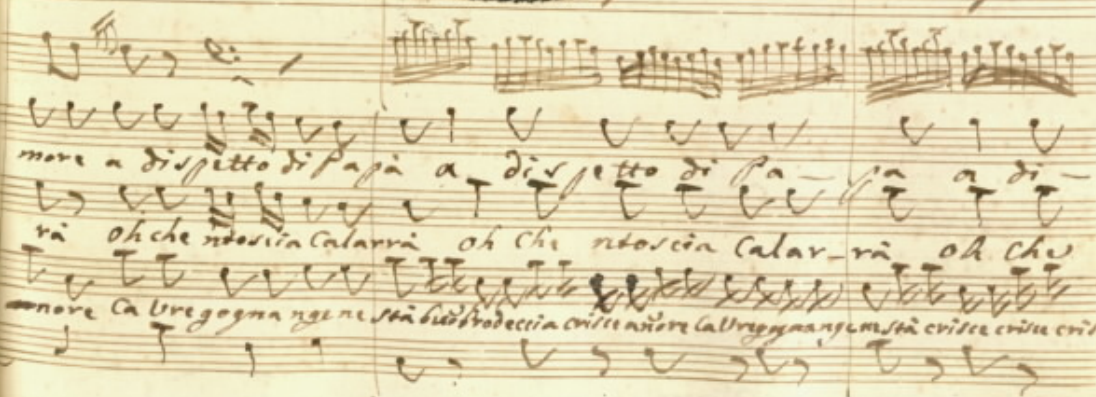 more a dispetto di Papà a dispetto di Pa - pa a di -
rà oh che ntoscia Calarrà oh Che ntoscia Calar - rà oh Che
nore Ca Vregogna ngene stà crisce añore Ca Vregogna ngenestà crisce crisce cris